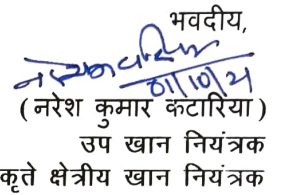 भवदीय,
01/10/21
( नरेश कुमार कटारिया )
उप खान नियंत्रक
कृते क्षेत्रीय खान नियंत्रक